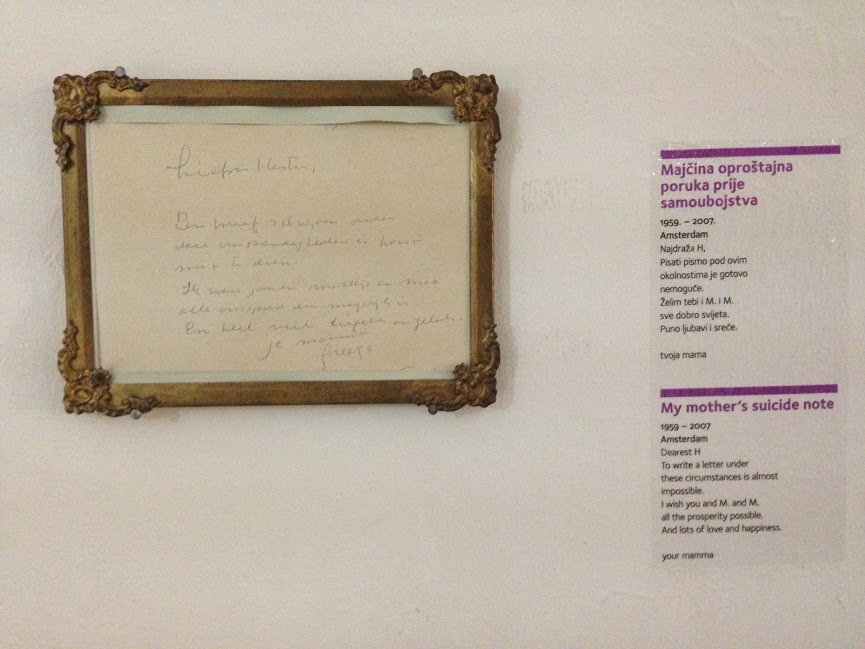 Een brief schrijven onder
deze omstandigheden is haast
niet te doen.
Ik wens jou en en
alle voorspoed die mogelijk is.
En heel veel liefde en geluk.
je mamma
Majčina oproštajna
poruka prije
samoubojstva
1959. – 2007.
Amsterdam
Najdraža H,
Pisati pismo pod ovim
okolnostima je gotovo
nemoguče.
Želim tebi i M. i M.
sve dobro svijeta.
Puno ljubavi i sreče.
tvoja mama
My mother's suicide note
1959 – 2007
Amsterdam
Dearest H
To write a letter under
these circumstances is almost
impossible.
I wish you and M. and M.
all the prosperity possible.
And lots of love and happiness.
your mamma